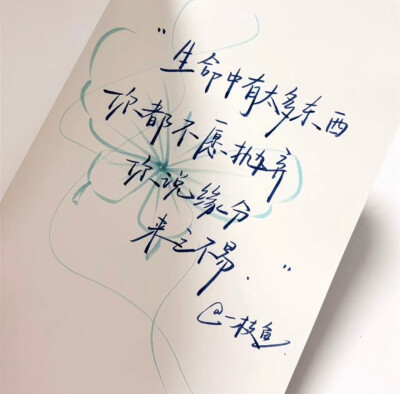 “生命中有太多东西
你都不愿抛弃
你说缘分
来之不易.”
@一枝鱼.